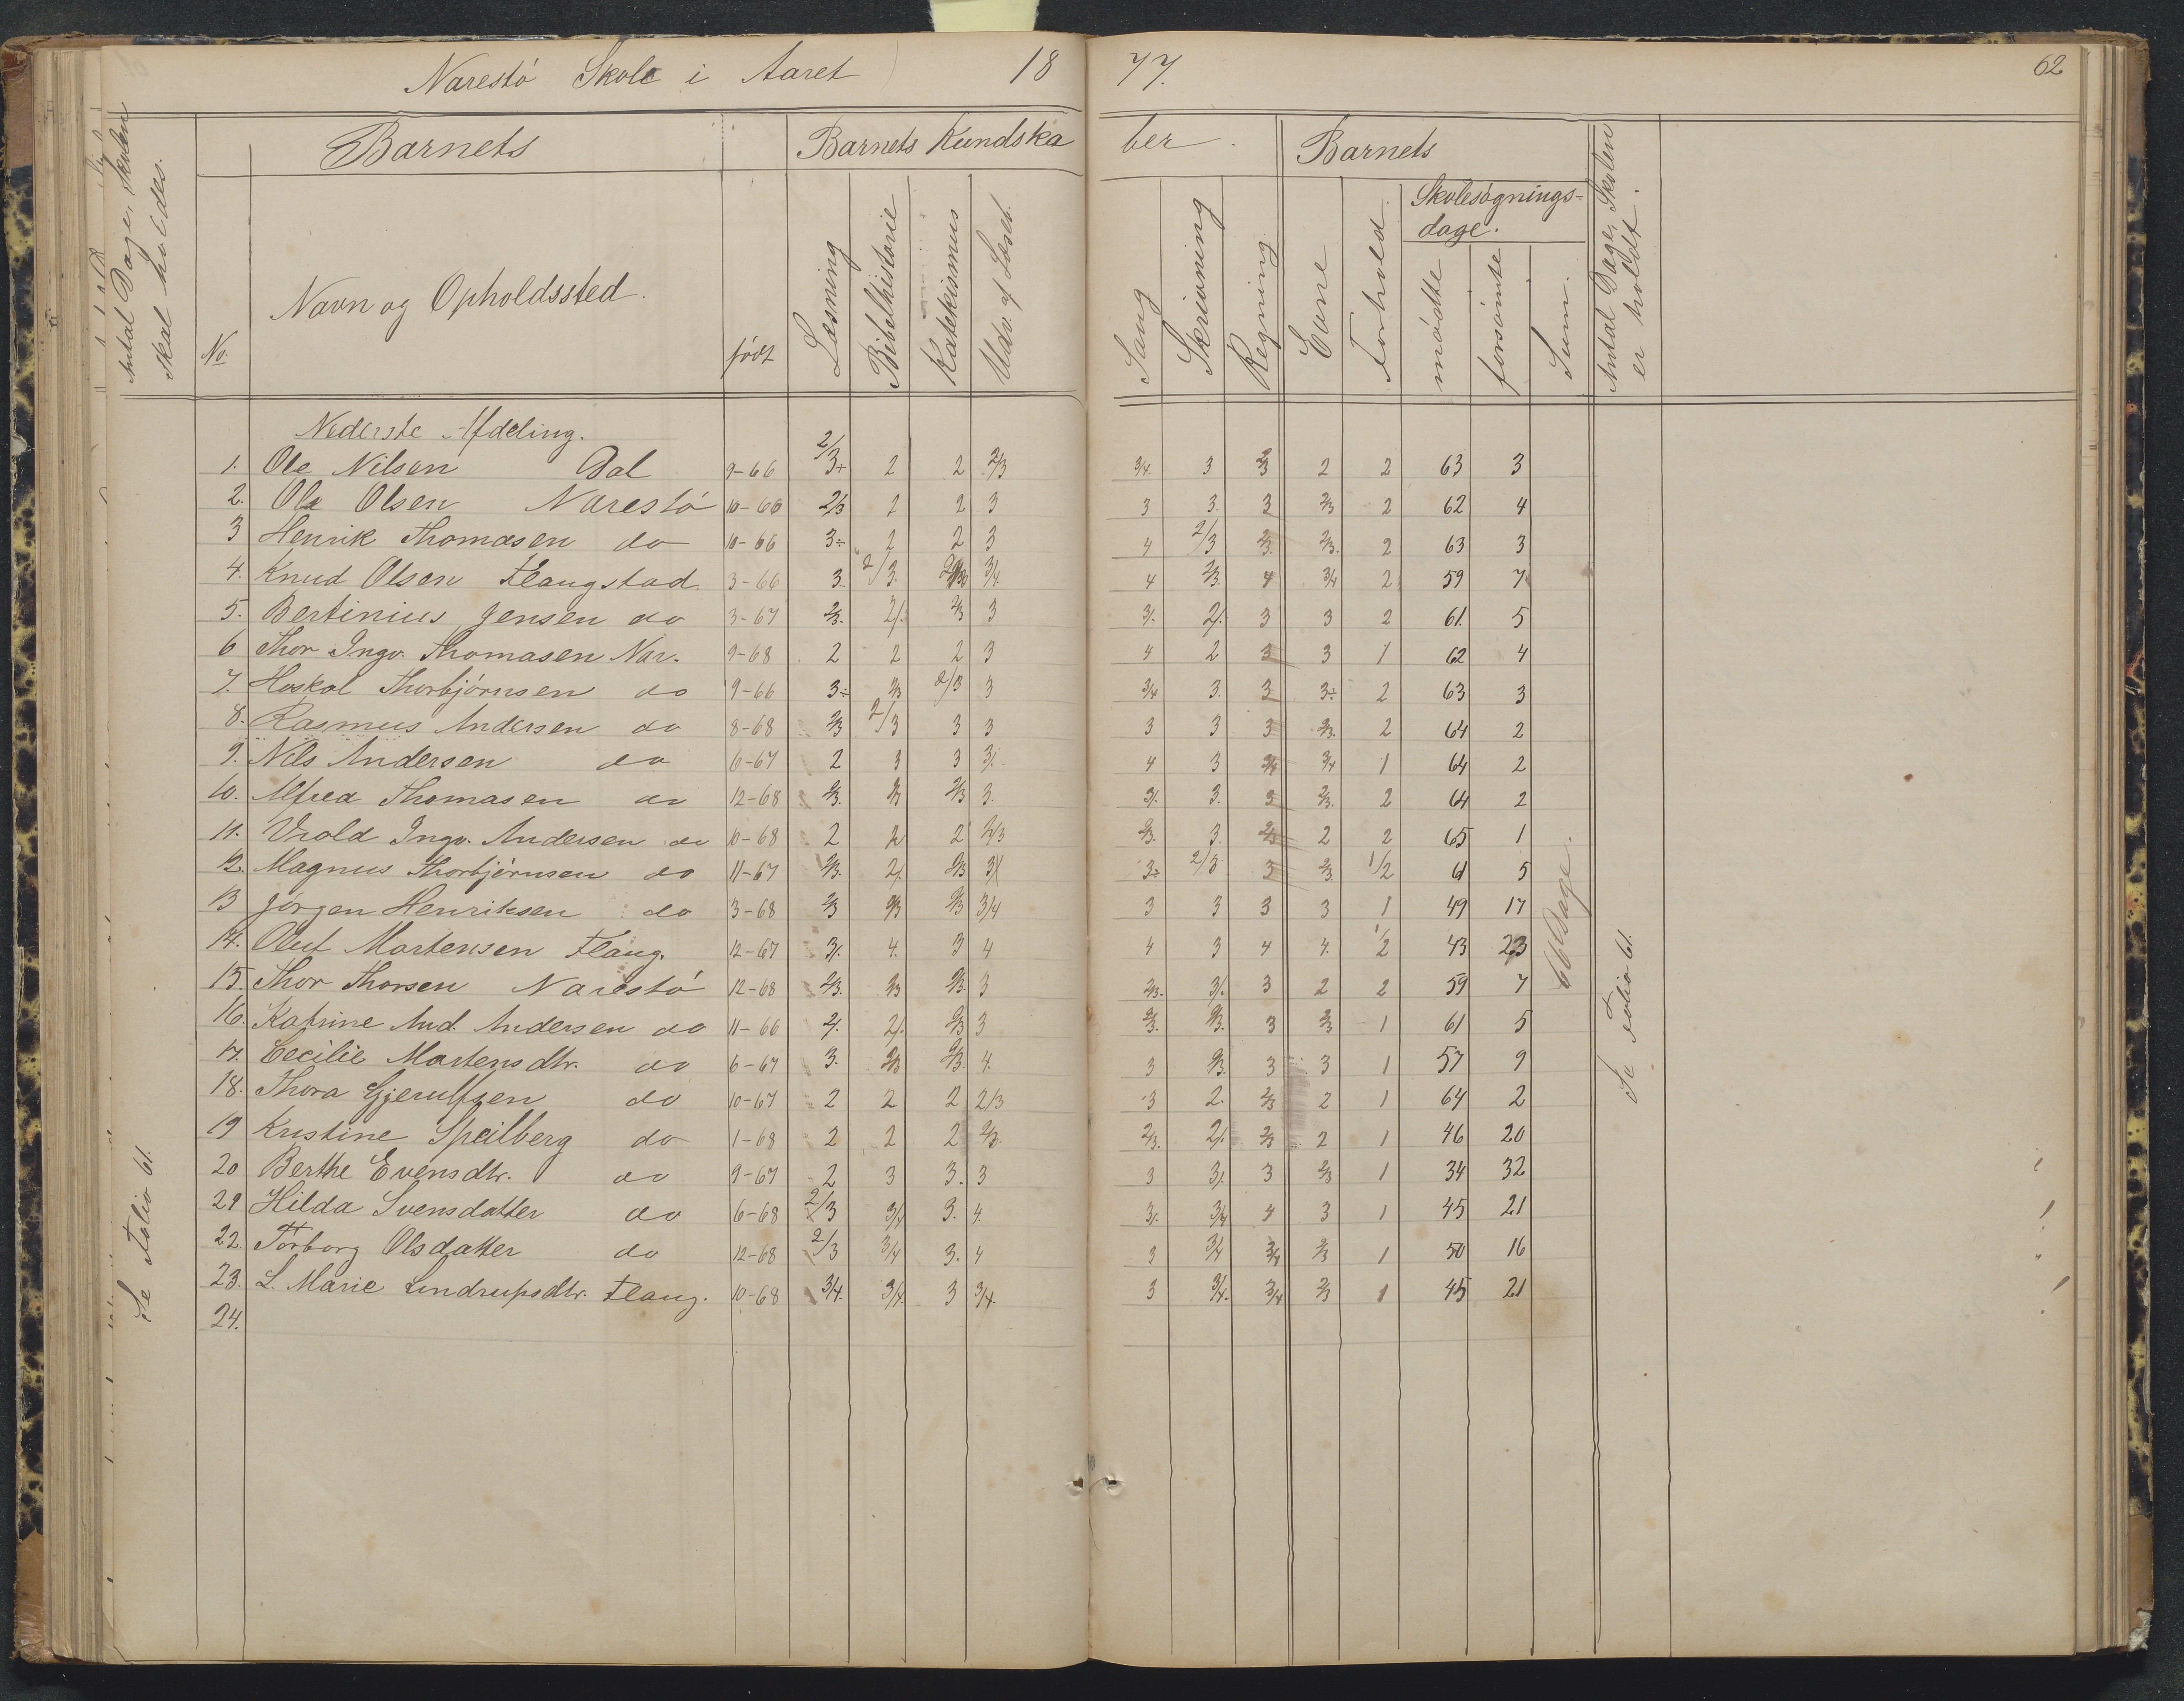 Narestö Skole i Aaret 1877.
62
Antal Dage, Skolen skal holdes.
No.
Barnets
Navn og Opholdssted.
født
Barnets Kundskaber.
Læsning
Bibelhistorie
Katekismus
Udv. af Læseb.
Sang
Skrivning
Regning
Barnets
Evne
Forhold.
Skolesøgnings-
dage.
mødte
forsømte
Sum.
Antal Dage, Skolen er holdt.
Nederste Afdeling.
1. Ole Nilsen Dal 9-66 2/3÷ 2 2 2/3 3/4. 3 2/3 2 2 63 3
2. Ola Olsen Narestö 10-66 2/3 2 2 3 3 3. 3 2/3 2 62 4
3 Henrik Thomasen do 10-66 3÷ 2 2 3 4 2/3 2/3. 2/3. 2 63 3
4. Knud Olsen Flangstad 3-66 3. 2/3. 3/4. 4 2/3. 4 3/4 2 59 7
5. Bertinius Jensen do 3-67 2/3. 2/. 2/3 3 3/. 2/. 3 3 2 61. 5
6 Thor Ingv. Thomasen Nar. 9-68 2 2 2 3 4 2 3 3 1 62 4
7. Hoskol Thorbjörnsen do 9-66 3÷ 2/3 2/3 3 3/4 3. 3 3÷ 2 63 3
8. Rasmus Andersen do 8-68 2/3 2/3 3 3 3 3 3 2/3. 2 64 2
9. Nils Andersen do 6-67 2 3 3 3/. 4 3 3/4 3/4 1 64 2
10. Alfred Thomasen do 12-68 2/3. 2/3 2/3 3. 3/. 3. 3 2/3. 2 64 2
11. Vrold Ingv. Andersen do 10-68 2 2 2 2/3 2/3. 3. 2/3 2 2 65 1
12. Magnus Thorbjörnsen do 11-67 2/3. 2/. 2/3 3/ 3÷ 2/3 3 2/3. 1/2 61 5
13 Jörgen Henriksen do 3-68 2/3 2/3 2/3 3/4 3 3 3 3 1 49 17
14. Olut Mortensen Flang. 12-67 3/. 4. 3 4 4 3 4 4. 1/2 43 23
15. Thor Thorsen Narestö 12-68 2/3. 2/3 2/3. 3 2/3. 3/. 3 2 2 59 7
16. Katrine And. Andersen do 11-66 2/. 2/. 2/3 3 2/3. 2/3. 3 2/3 1 61 5
17. Cecilie Mortensdtr. do 6-67 3. 2/3 2/3. 4. 3 2/3. 3 3 1 57 9
18. Thora Gjerulfsen do 10-67 2 2 2 2/3 3 2. 2/3 2 1 64 2
19 Kristine Speilberg do 1-68 2 2 2 2/3. 2/3. 2/. 2/3 2 1 46 20
20 Berthe Evensdtr. do 9-67 2 3 3. 3 3 3/. 3 2/3 1 34 32
21 Hilda Svensdatter do 6-68 2/3 3/4 3. 4. 3/. 3/4 4 3 1 45 21
22. Torborg Olsdatter do 12-68 2/3 3/4 3. 4 3 3/4 3/4 2/3 1 50 16
23. L. Marie Lindrupsdtr. Flang. 10-68 3/4. 3/4. 3 3/4. 3 3/4. 3/4 2/3 1 45 21
24.
Se Folio 61.
66 Dage.
Se Folio 61.